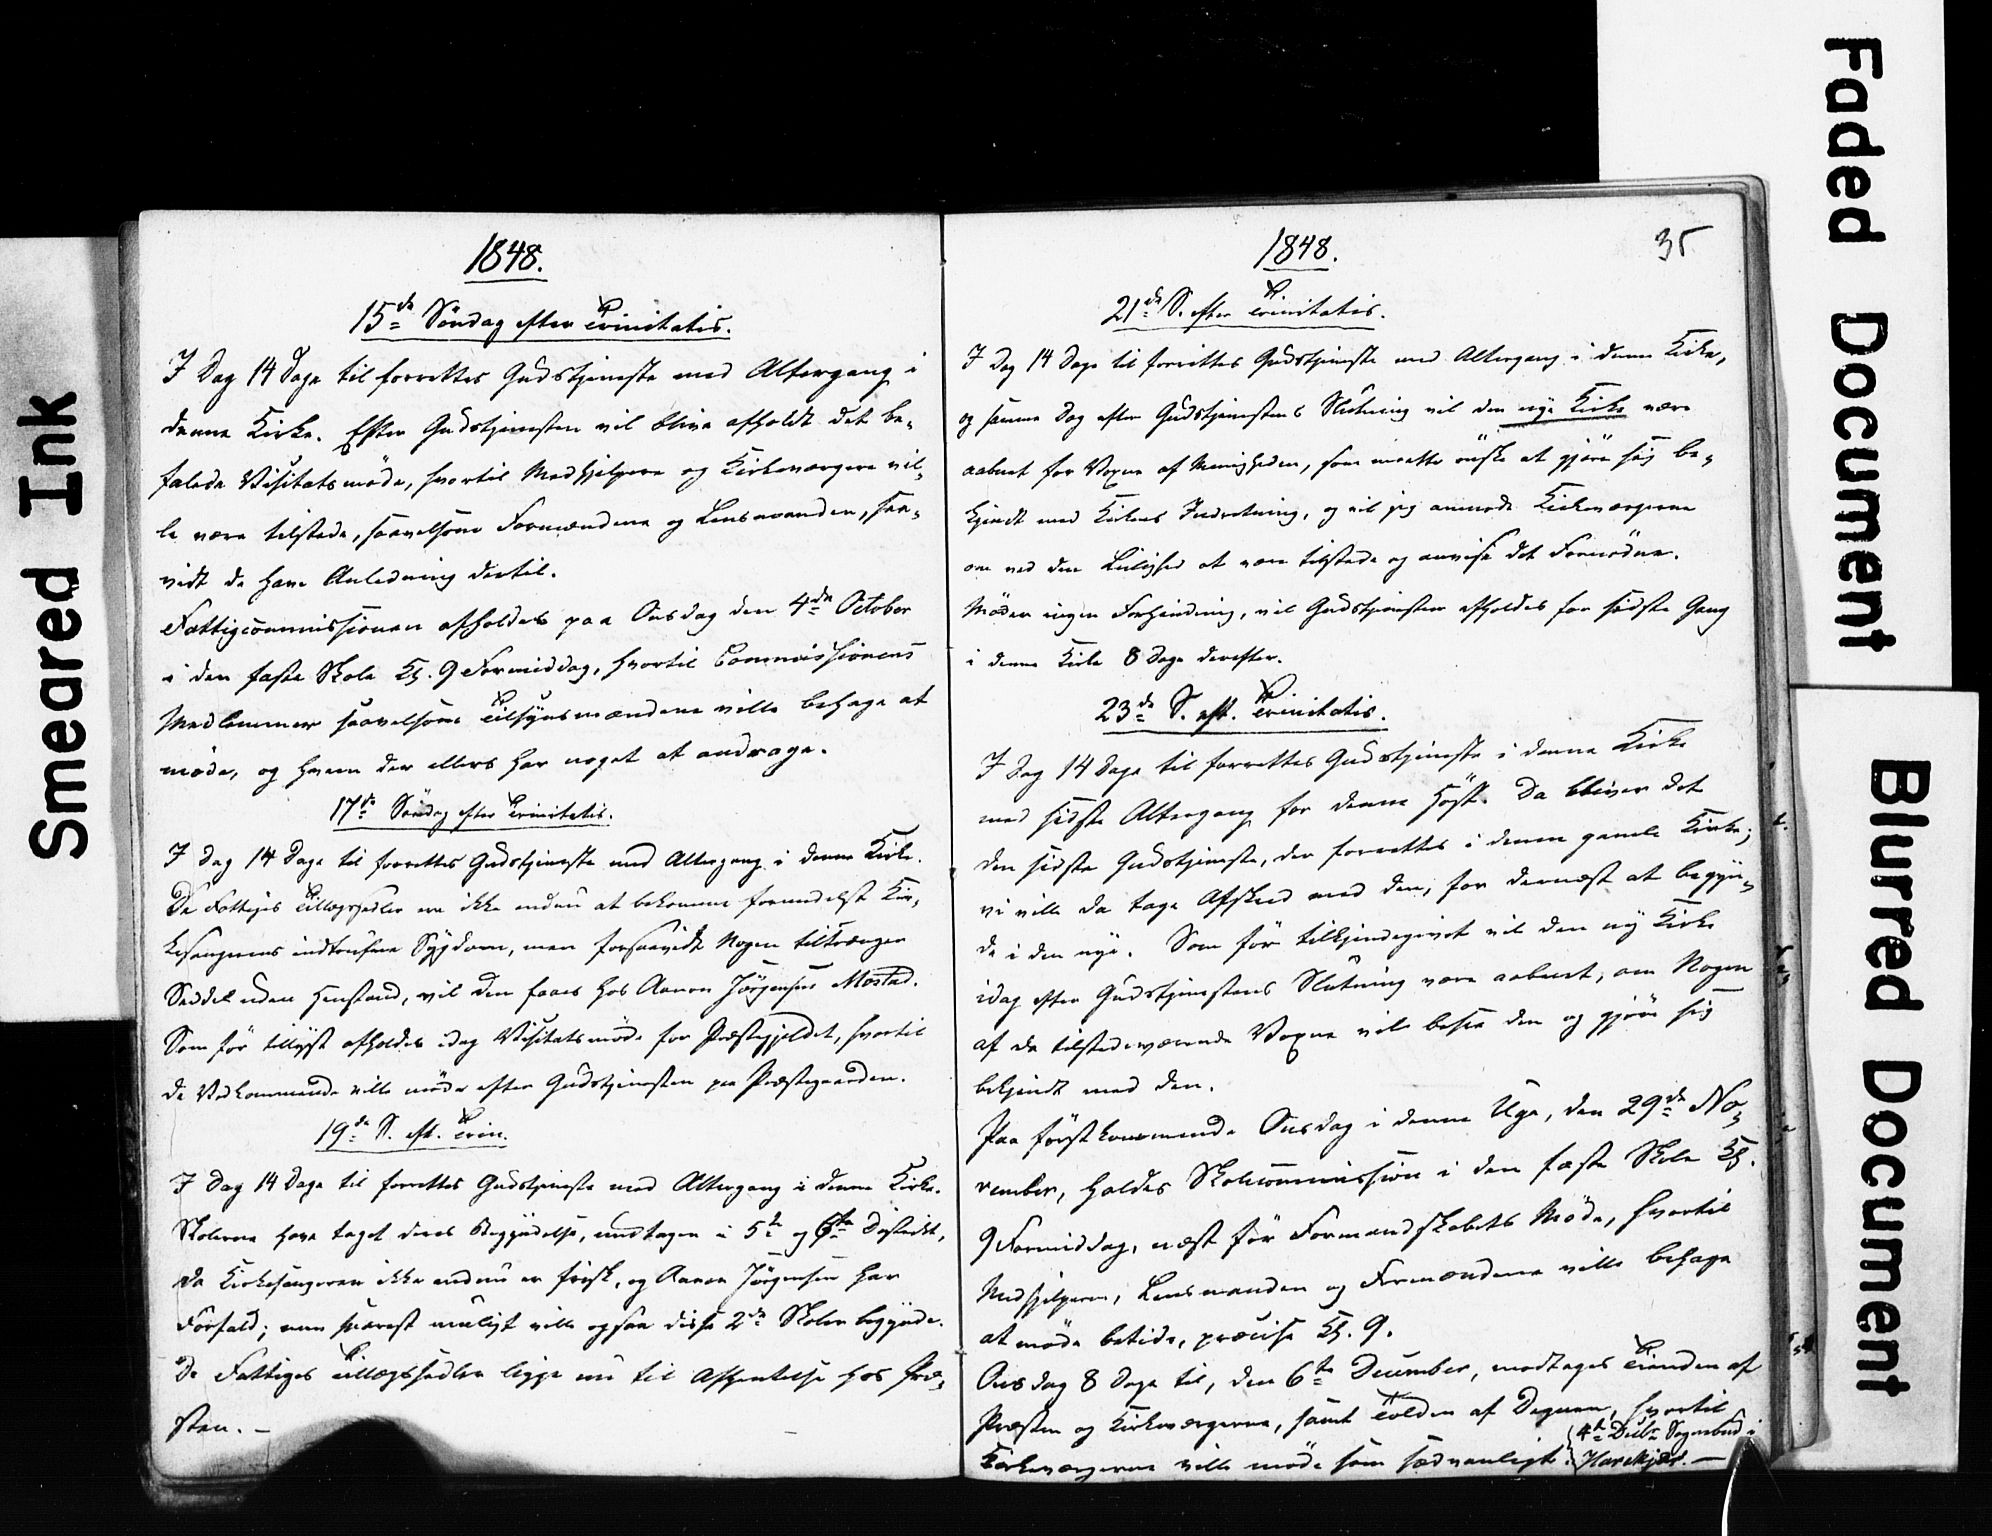 Smeared Ink
1848.
15de Söndag efter Trinitatis.
I Dag 14 Dage til forrettes Gudstjeneste med Altergang i
denne Kirke. Efter Gudstjenesten vil blive afholdt det be-
falede Visitatsmøde, hvortil Medhjelpere og Kirkeværgere vil-
le være tilstede, saavelsom Formændene og Lensmanden, saa-
vidt de have Anledning dertil.
Fattigcommissionen afholdes paa Onsdag den 4de October
i den faste Skole Kl. 9 Formiddag, hvortil Commissionens
Medlemmer saavelsom Tilsynsmændene ville behage at
møde, og hvem der ellers har noget at andrage.
17de Söndag efter Trinitatis.
I Dag 14 Dage til forrettes Gudstjeneste med Altergang i denne Kirke.
De Fattiges Tillægssedler ere ikke endnu at bekomme formedelst Kir-
kesangerens indtrufne Sygdom, men forsaavidt Nogen tiltrænger
Seddel uden Henstand, vil den faaes hos Aaron Jörgensen Mostad.
Som för tillyst afholdes idag Visitatsmöde for Præstegjeldet, hvortil
de Vedkommende ville möde efter Gudstjenesten paa Præstegaarden.
19de S. eft. Trin.
I Dag 14 Dage til forrettes Gudstjeneste med Altergang i denne Kirke.
Skolerne have taget deres Begyndelse, undtagen i 5te og 6te District,
da Kirkesangeren ikke endnu er frisk, og Aaron Jörgensen har
Forfald; men snarest muligt ville ogsaa disse 2de Skoler begynde.
De Fattiges Tillægssedler ligge nu til Afhentelse hos Præ-
sten. –
1848.
35
21de S. efter Trinitatis.
I Dag 14 Dage til forrettes Gudstjeneste med Altergang i denne Kirke,
og samme Dag efter Gudstjenestens Slutning vil den nye Kirke være
aabnet for Voxne af Menigheden, som maatte önske at gjöre sig be-
kjendt med Kirkens Indretning, og vil jeg anmode Kirkeværgerne
om ved den Leilighed at være tilstede og anvise det Fornödne.
Möder ingen Forhindring, vil Gudstjenesten afholdes for sidste Gang
i denne Kirke 8 Dage derefter.
23de S. eft. Trinitatis.
I Dag 14 Dage til forrettes Gudstjeneste i denne Kirke
med sidste Altergang for denne Höst. Da bliver det
den sidste Gudstjeneste, der forrettes i denne gamle Kirke;
vi ville da tage Afsked med den, for dernæst at begyn-
de i den nye. Som för tilkjendegivet vil den ny Kirke
idag efter Gudstjenestens Slutning være aabnet, om Nogen
af de tilstedeværende Voxne vil besee den og gjöre sig
bekjendt med den.
Paa förstkommende Onsdag i denne Uge, den 29de No-
vember, holdes Skolecommission i den faste Skole Kl.
9 Formiddag, næst för Formandskabets Møde, hvortil
Medhjelperen, Lensmanden og Formændene ville behage
at møde betids, præcise Kl. 9.
Onsdag 8 Dage til, den 6te December, modtages Tienden af
Præsten og Kirkeværgerne, samt Tolden af Degnen, hvortil
Kirkeværgerne ville möde som sædvanligt.
4de Decbr. Sognebud i
Faded Document
Blurred Document